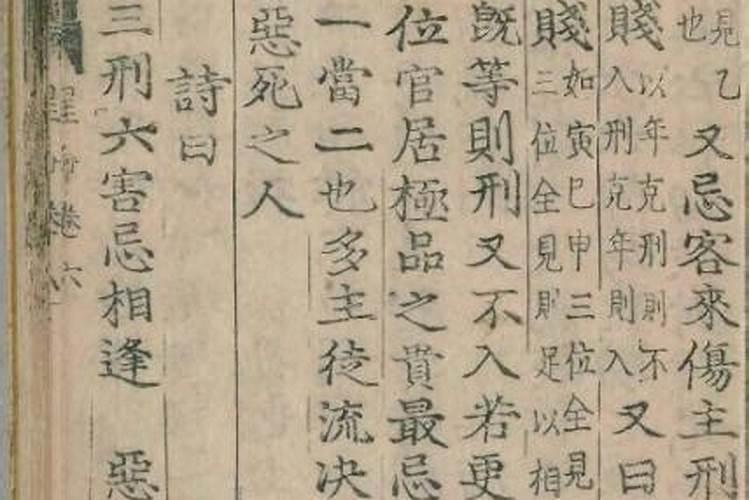 見乙也又忌客來傷主刑
賤以年克刑則不入刑克年則入又曰
賤如寅巳申三位全見三位全見則足以相
旣等則刑又不入若更
位官居極品之貴最忌
一當二也多主徒流决
惡死之人
詩曰
三刑六害忌相逢　惡
卷六